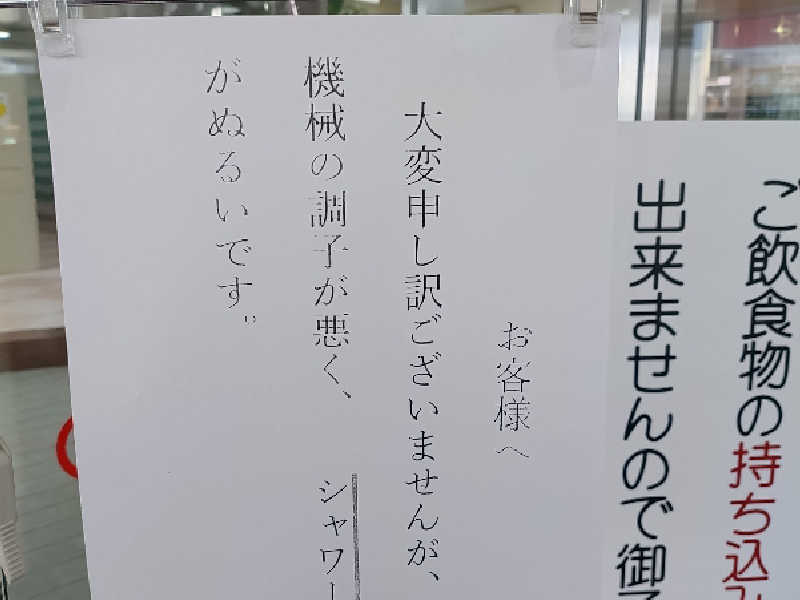 ご飲食物の持ち込み
出来ませんので御
お客様へ
大変申し訳ございませんが、
機械の調子が悪く、シャワー
がぬるいです。